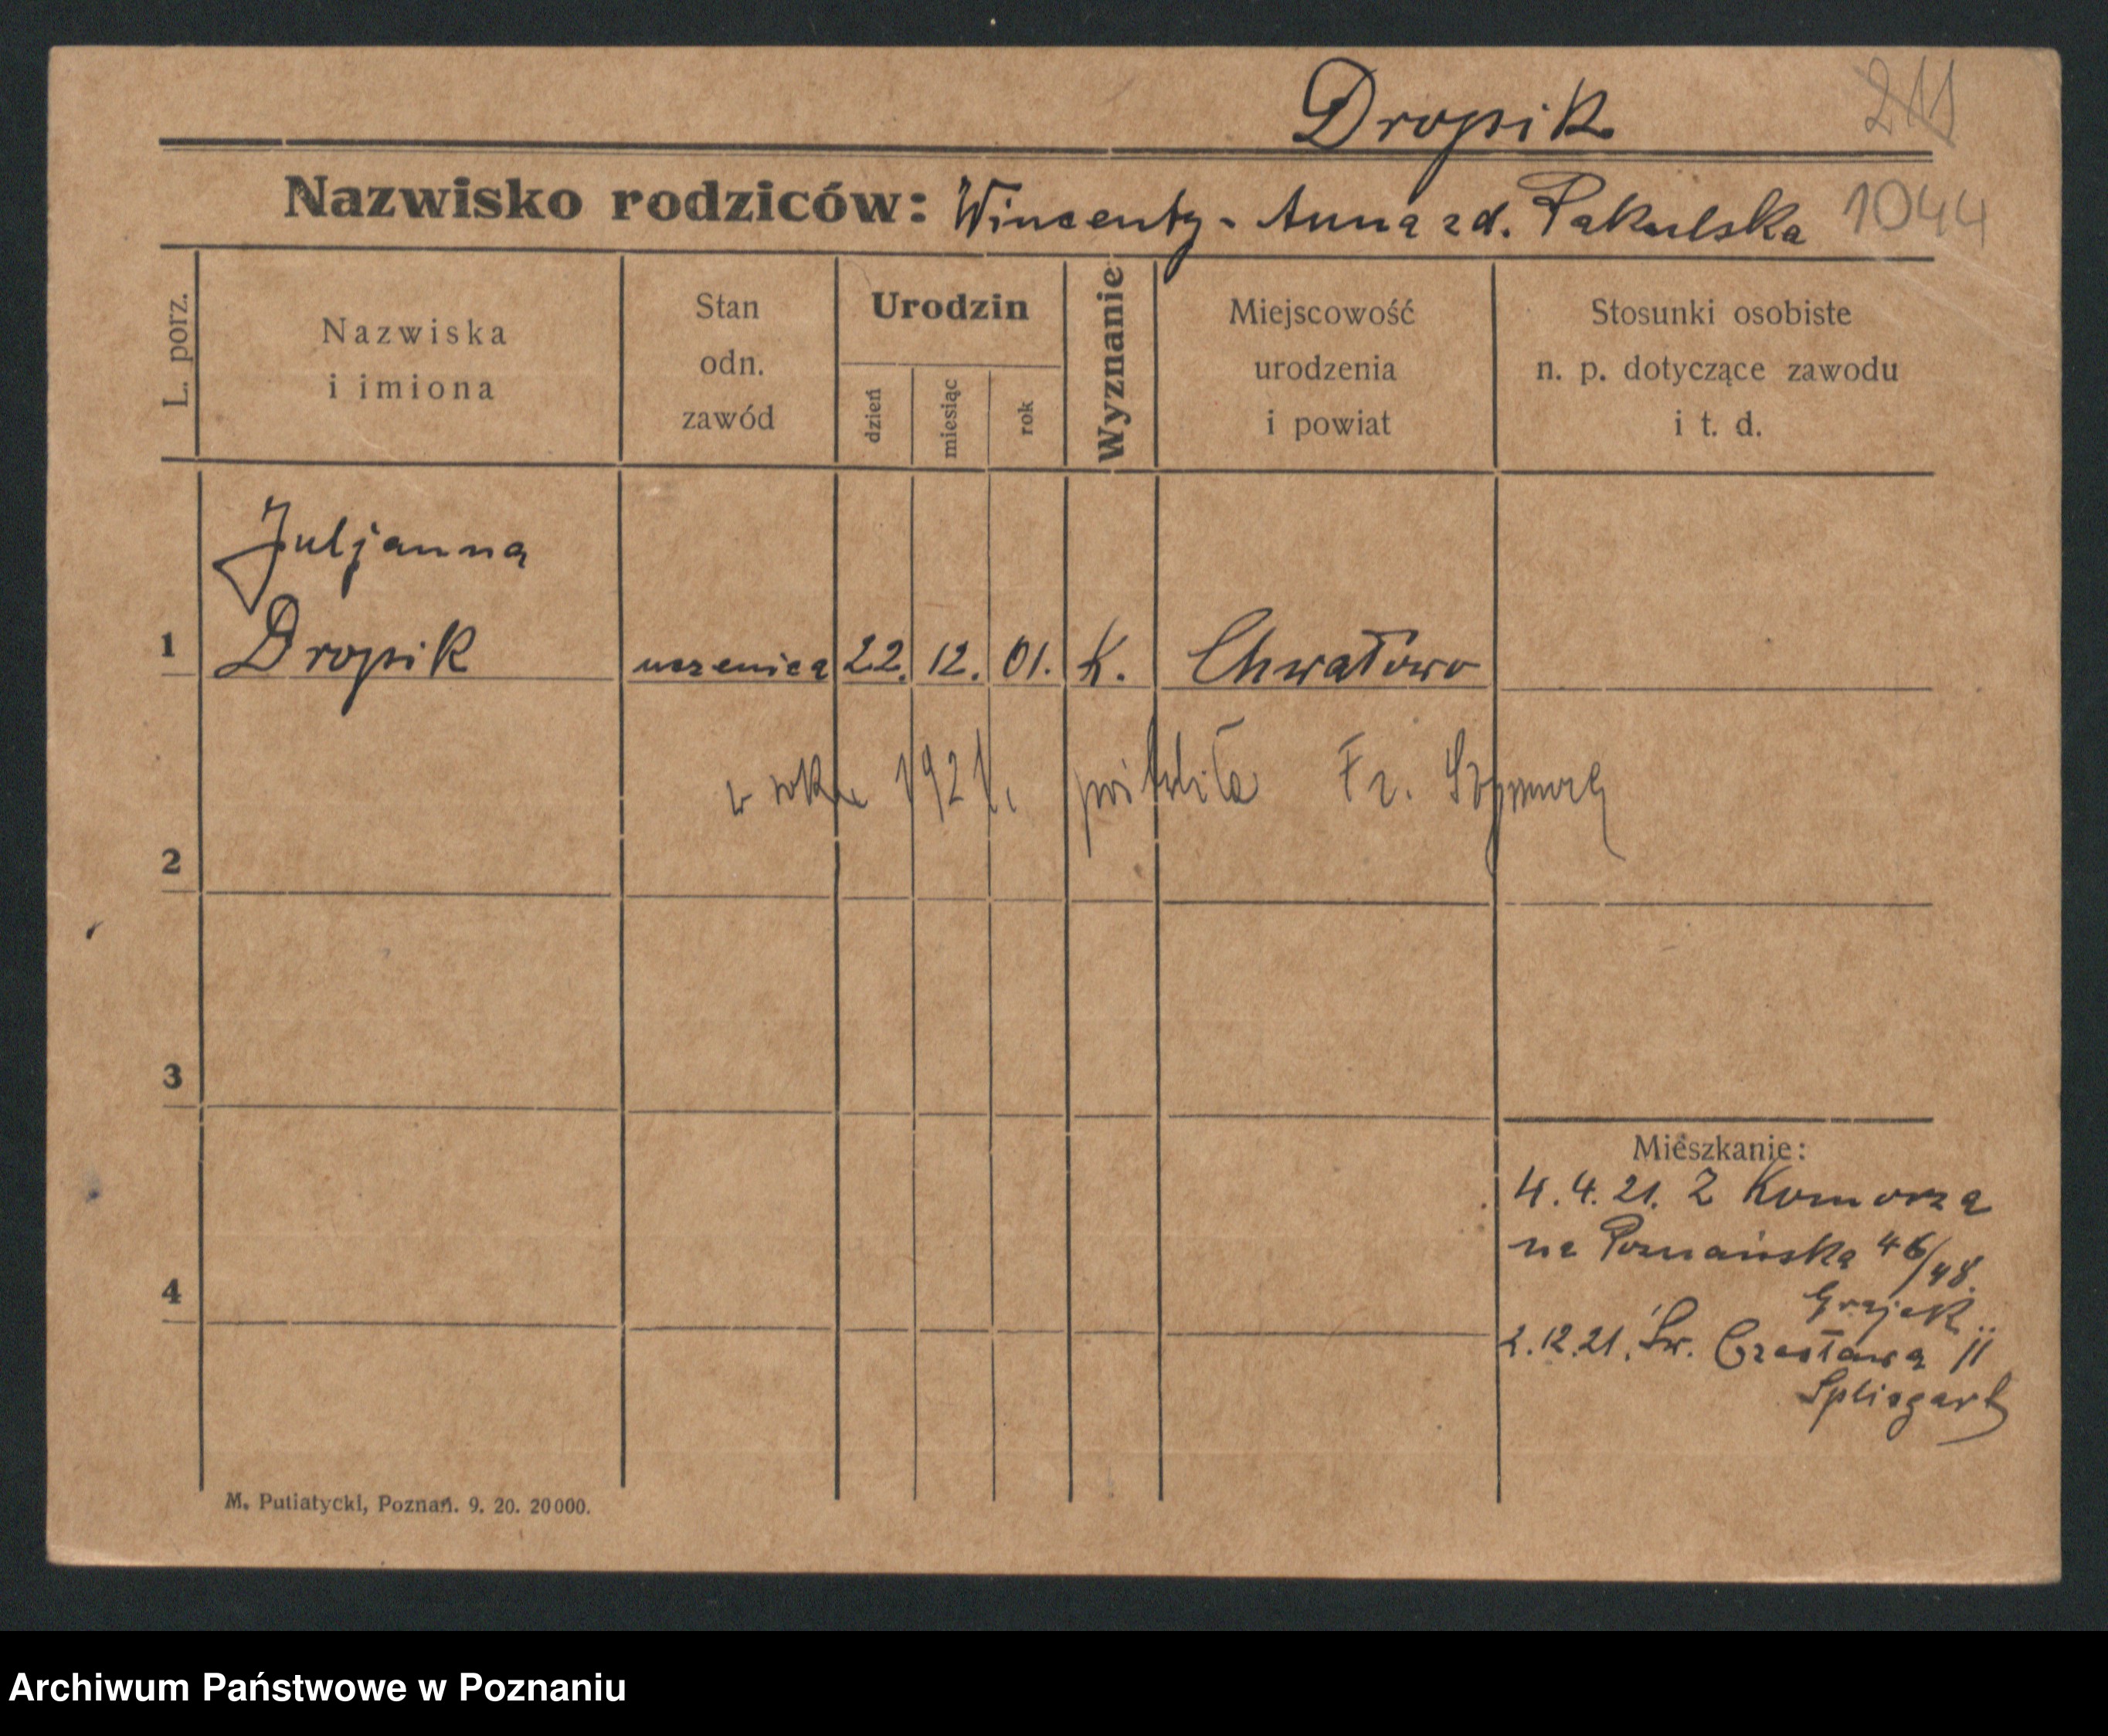 Dropik
211
Nazwisko rodziców: Wincenty - Anna zd. Pakulska 1044
L. porz.
Nazwiska
i imiona
Stan
odn.
zawód
Urodzin
dzień
miesiąc
rok
Wyznanie
Miejscowość
urodzenia
i powiat
Stosunki osobiste
n. p. dotyczące zawodu
i t. d.
Juljanna
1 Dropik uczenica 22. 12. 01. K. Chwałowo
w roku 1921. Fr.
2
3
4
Mieszkanie:
4.4.21. Z Komorza
na Poznańska 46/48.
Grajek
2.12.21. Św. Czesława 11
Splisgart
M. Putiatycki, Poznań. 9. 20. 20000.
Archiwum Państwowe w Poznaniu